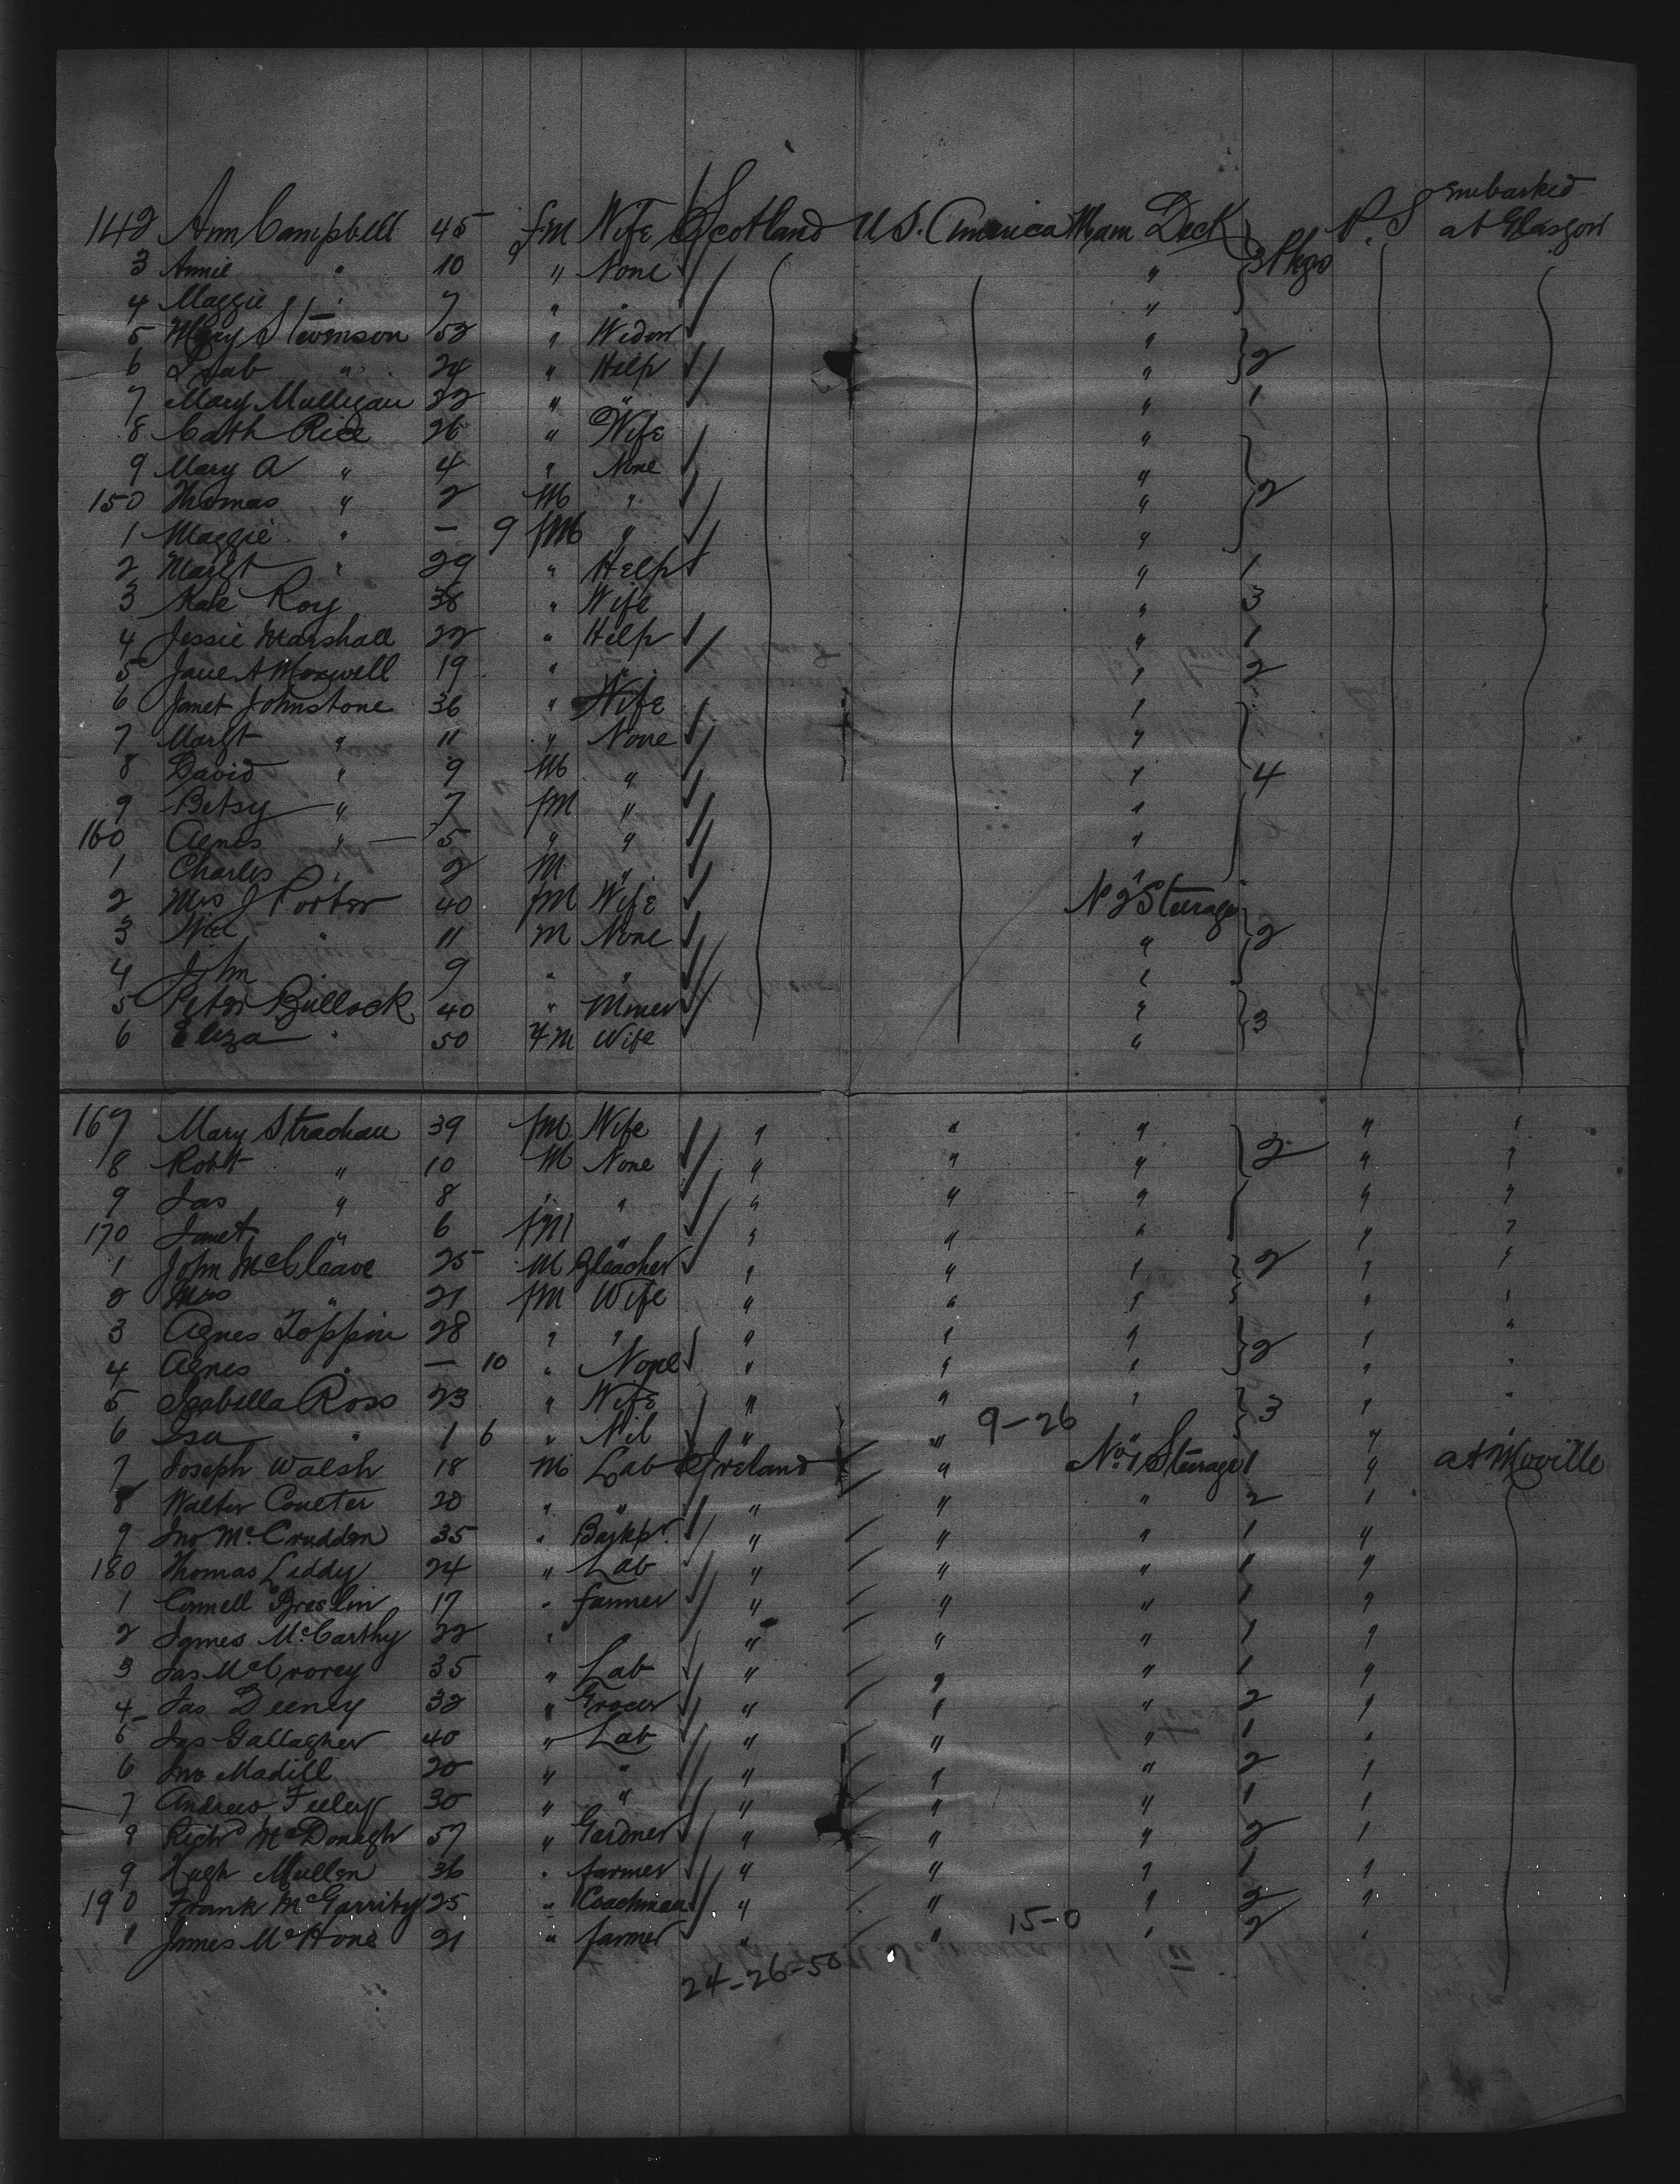 142 Ann Campbell 45 fM Wife Scotland U S. America Main Deck 3 Pkgs P. S embarked at Glasgow
3 Annie " 10 " None "
4 Maggie " 7 " " "
5 Mary Stevenson 52 " Widow "
6 Isab " 24 " Help " 2
7 Mary Mulligan 32 " " " 1
8 Cath Rice 26 " Wife "
9 Mary A " 4 " None "
150 Thomas " 2 M " " 2
1 Maggie " — 9 fM " "
2 Margt " 29 " Help " 1
3 Kate Roy 38 " Wife " 3
4 Jessie Marshall 22 " Help " 1
5 Jane A Maxwell 19 " " " 2
6 Janet Johnstone 36 " Wife "
7 Margt " 11 " None "
8 David " 9 M " " 4
9 Betsy " 7 fM " "
160 Agnes " — 5 " " "
1 Charles " 2 M " "
2 Mrs J Porter 40 fM Wife No 2 Steerage
3 " 11 M None " 2
4 John " 9 " " "
5 Peter Bullock 40 " Miner " 3
6 Eliza " 50 FM Wife "
167 Mary Strachan 39 fM Wife " " " 2 " "
8 Robt " 10 M None " " " " "
9 Jas " 8 " " " " " " "
170 Janet " 6 fM " " " " " "
1 John McCleave 25 M Bleacher " " " 2 " "
2 Mrs " 21 fM Wife " " " " "
3 Agnes Toppin 28 " " " " " 2 " "
4 Agnes " — 10 " None " " " " "
5 Isabella Ross 23 " Wife " " " 3 " "
9-26
6 Isa " 1 6 " Nil " " "
7 Joseph Walsh 18 M Lab Ireland " No 1 Steerage 1 " at Moville
8 Walter Coulter 20 " " " " " 2 "
9 Jno McCrudden 35 " Barkpr " " " 1 "
180 Thomas Liddy 24 " Lab " " " 1 "
1 Connell Breslin 17 " farmer " " " 1 "
2 James McCarthy 22 " " " " 1 "
3 Jas McCrorey 35 " Lab " " " 1 "
4 Jas Deeney 32 " Grocer " " " 2 "
5 Jas Gallagher 40 " Lab " " " 1 "
6 Jno Madill 20 " " " " " 2 "
7 Andrew Feeley 30 " " " " " 1 "
8 Richd McDonagh 57 " Gardner " " " 2 "
9 Hugh Mullen 36 " farmer " " " 1 "
190 Frank McGarrity 25 " Coachman " " " 2 "
15-0
1 James McHone 21 " farmer " " " 2 "
24-26-50